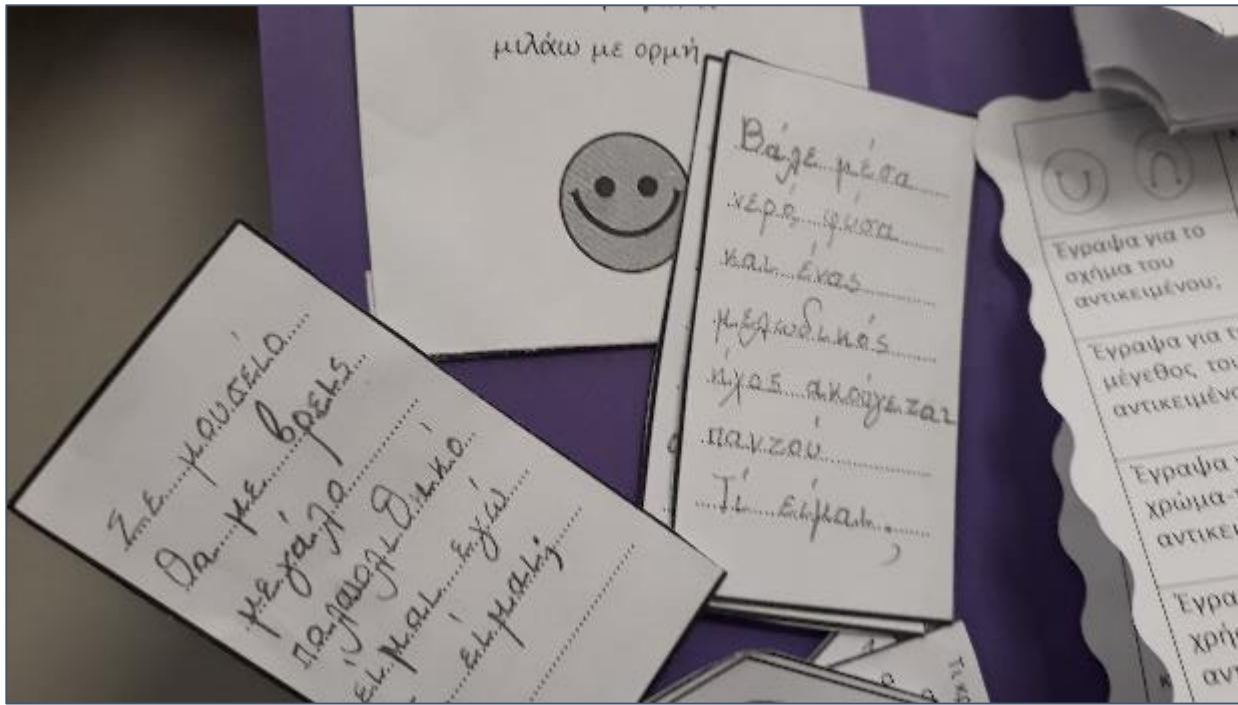 μιλάω με ορμή
Βάλε μέσα
νερό φύσα
και ένας
μελωδικός
ήχος ακούγεται
παντού
Τί είμαι;
Σε μουσείο
θα με βρεις
μεγάλο
παλαιολιθικό
είμαι εγώ
Έγραψα για το
σχήμα του
αντικειμένου;
Έγραψα για τ
μέγεθος του
αντικειμένο
Έγραψα
χρώμα
αντικει
Έγρα
χρή
αντ